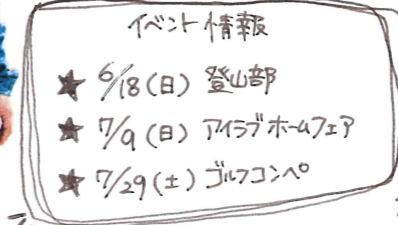 イベント情報
★ 6/18(日) 登山部
★ 7/9(日) アイラブホームフェア
★ 7/29(土) ゴルフコンペ